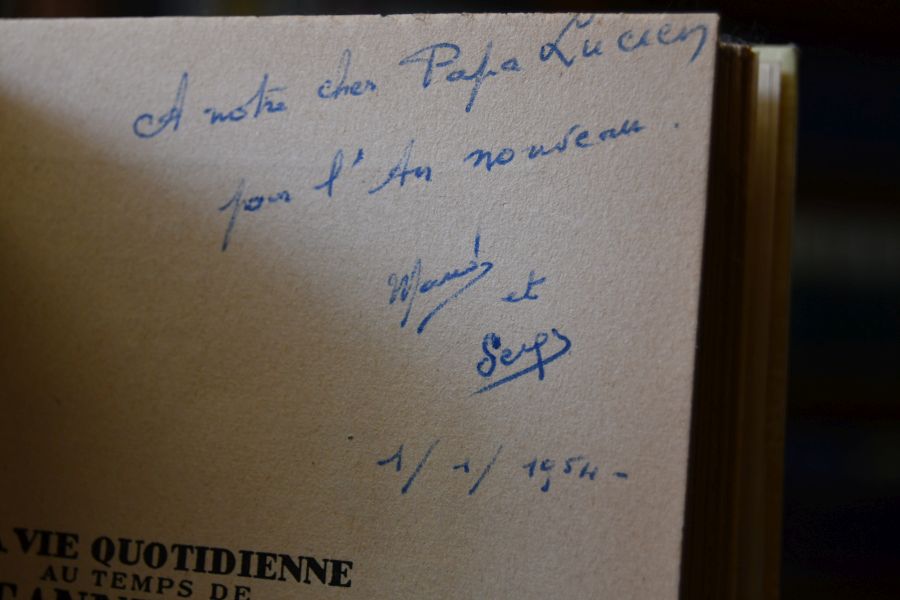 A notre cher Papa Lucien
pour l'An nouveau.
et
Serge
1/1/1954-
A VIE QUOTIDIENNE
AU TEMPS DE